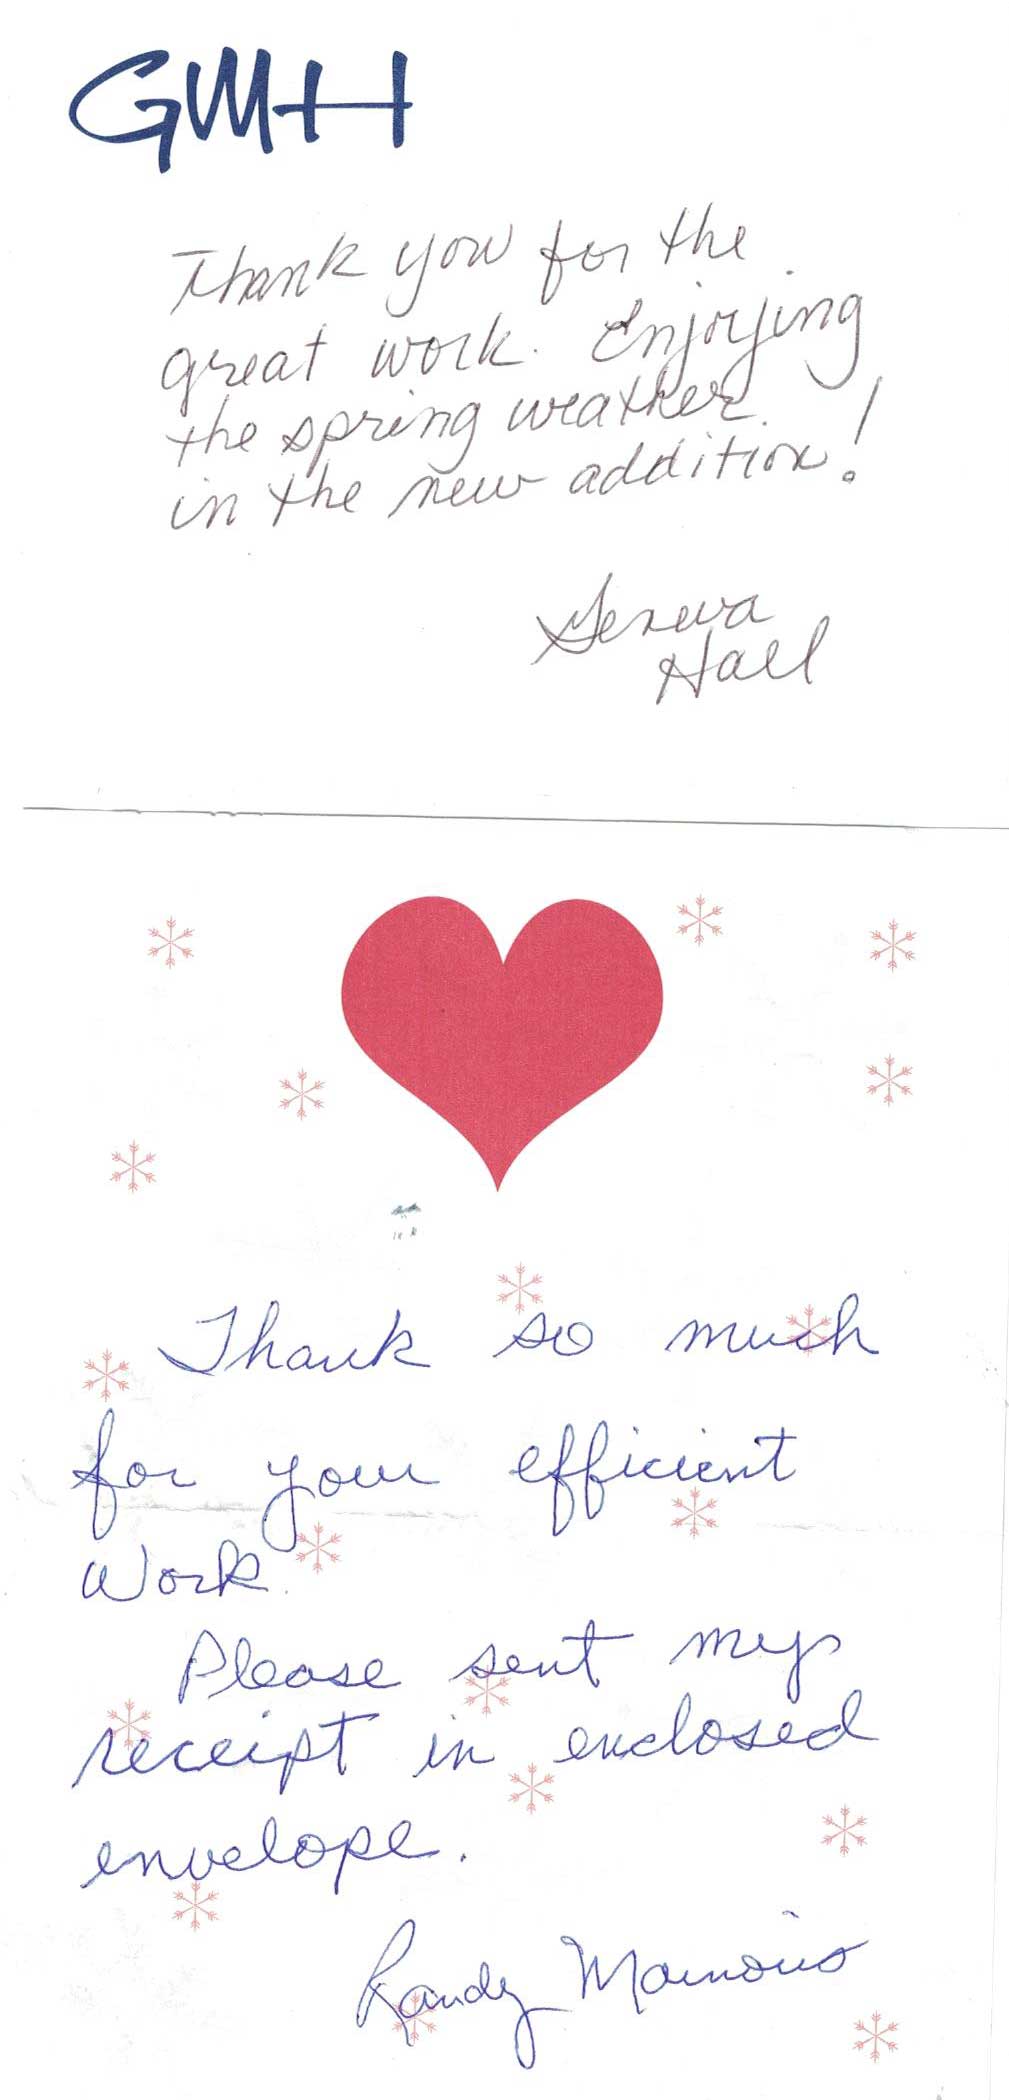 GMH
Thank you for the
great work. Enjoying
the spring weather
in the new addition!
Geneva
Hall
Thank so much
for your efficient
Work.
Please sent my
receipt in enclosed
envelope.
Randy